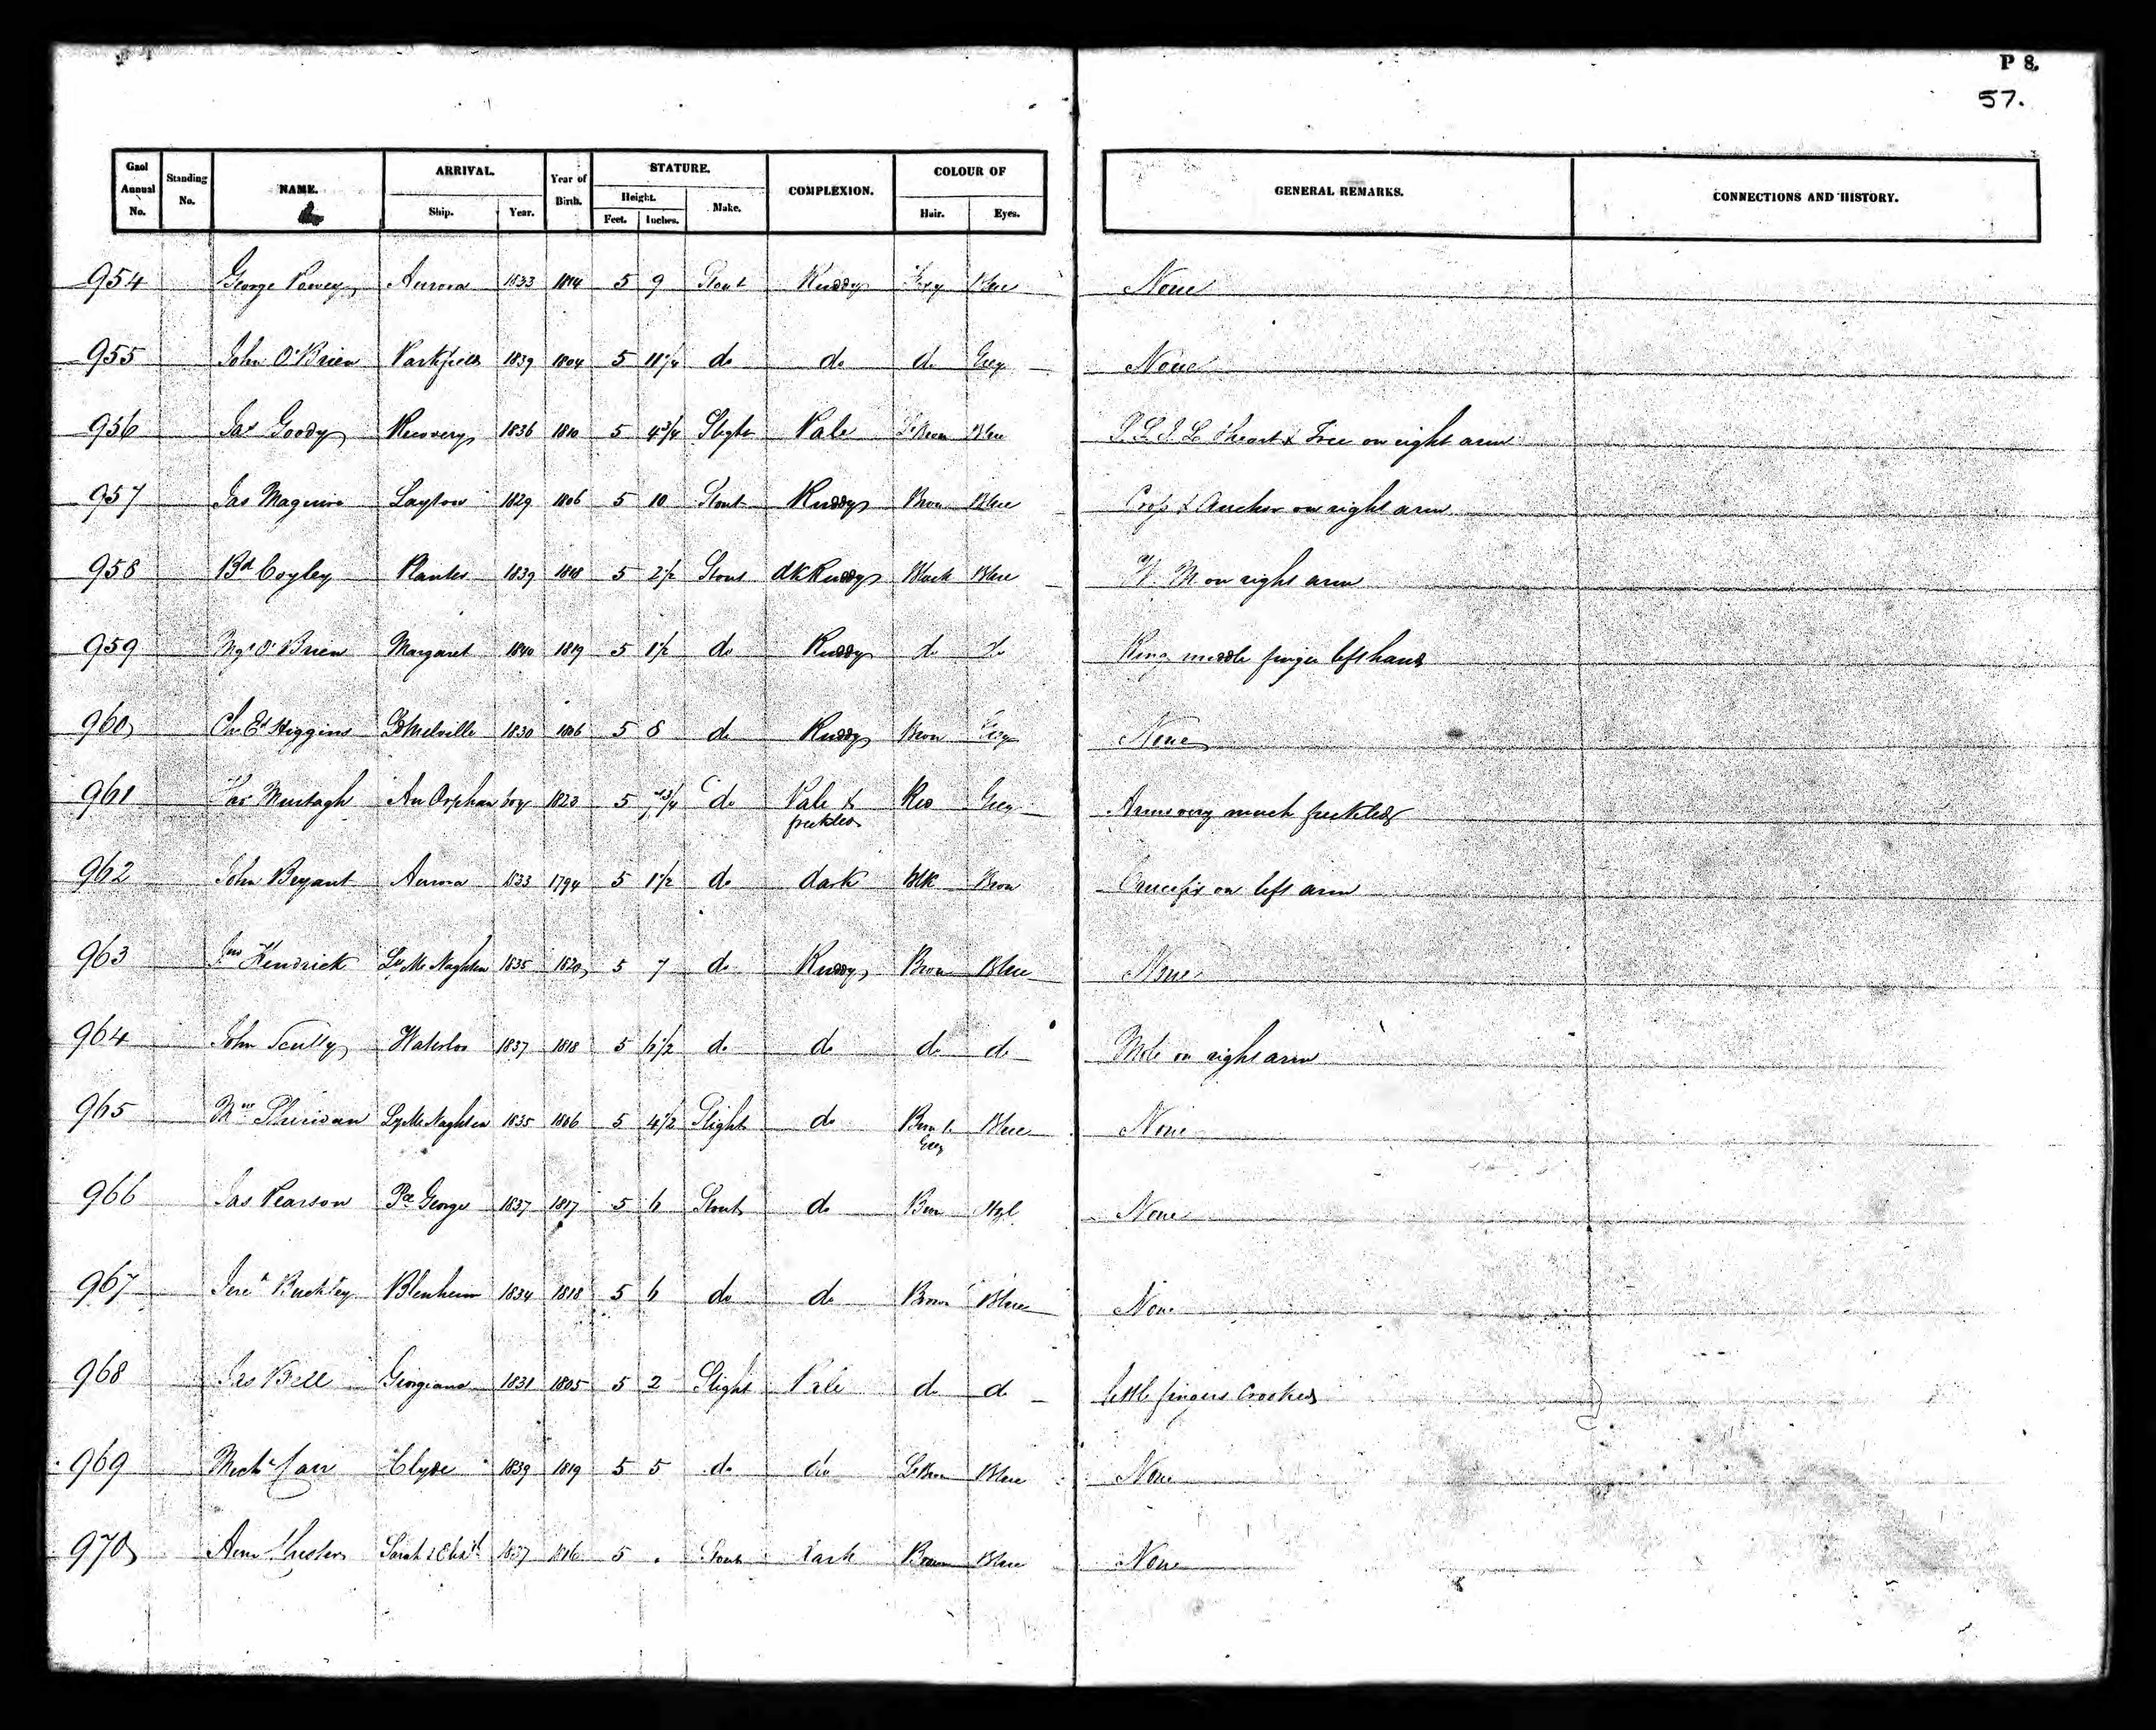 P 8.
57.
Gaol Annual No. Standing No. NAME. ARRIVAL. Ship. Year. Year of Birth. STATURE. Height. Feet. Inches. Make. COMPLEXION. COLOUR OF Hair. Eyes. GENERAL REMARKS. CONNECTIONS AND HISTORY.
954 George Aurora 1833 5 9 Stout Ruddy Grey Blue None
955 John O'Brien Parkfield 1839 1804 5 11 1/4 do do do Grey None
956 Jas Goody Recovery 1836 1810 5 4 3/4 Slight Pale Lt Bron Blue Heart & Tree on right arm
957 Jas Maguire Layton 1829 1806 5 10 Stout Ruddy Bron Blue Crofs & Anchor on right arm
958 Bd Coyley Planter 1839 1818 5 2 1/2 Stout dk Ruddy Black Blue W. M on right arm
959 Mgt O'Brien Margaret 1840 1819 5 1 1/2 do Ruddy do do Ring middle finger left hand
960 Higgins Ld Melville 1830 1806 5 8 do Ruddy Bron Grey None
961 Murtagh An Orphan boy 1823 5 3/4 do Pale & freckled Red Grey Arms very much freckled
962 John Bryant Aurora 1833 1794 5 1 1/2 do dark blk Bron Crucifix on left arm
963 Jno Kendrick Ly McNaghten 1835 1820 5 7 do Ruddy Bron Blue None
964 John Scully Waterloo 1837 1818 5 6 1/2 do do do do Mole on right arm
965 Sheridan Ly McNaghten 1835 1806 5 4 1/2 Slight do Bron to Grey Blue None
966 Jas Pearson Pce George 1837 1817 5 6 Stout do Bron Hzl None
967 Jerh Buckley Blenheim 1834 1818 5 6 do do Brown Blue None
968 Jas Bell Georgiana 1831 1805 5 2 Slight Pale do do little fingers Crooked
969 Michl Carr Clyde 1839 1819 5 5 do do Lt Bron Blue None
970 Ann Sarah & Elizth 1837 1816 5 . Stout Dark Brown Blue None